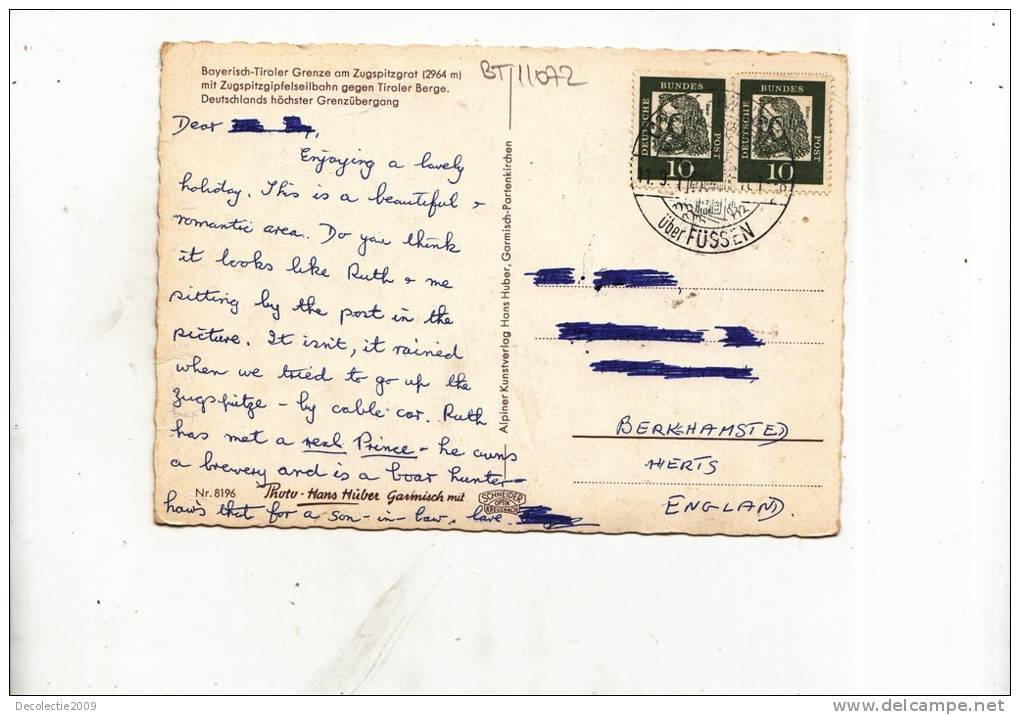 Bayerisch-Tiroler Grenze am Zugspitzgrat (2964 m)
mit Zugspitzgipfelseilbahn gegen Tiroler Berge.
Deutschlands höchster Grenzübergang
BT/11072
Dear
Enjoying a lovely
holiday. This is a beautiful &
romantic area. Do you think
it looks like Ruth & me
sitting by the post in the
picture. It isn't, it rained
when we tried to go up the
Zugspitze - by cable car. Ruth
has met a real Prince - he owns
a brewery and is a boar hunter -
how's that for a son-in-law. love.
Nr. 8196 Photo-Hans Huber Garmisch mit
SCHNEIDER
OPTIK
KREUZNACH
Alpiner Kunstverlag Hans Huber, Garmisch-Partenkirchen
DEUTSCHE BUNDES POST
10
DEUTSCHE BUNDES POST
10
über FÜSSEN
BERKHAMSTED
HERTS
ENGLAND.
Decolectie2009
www.delcampe.net